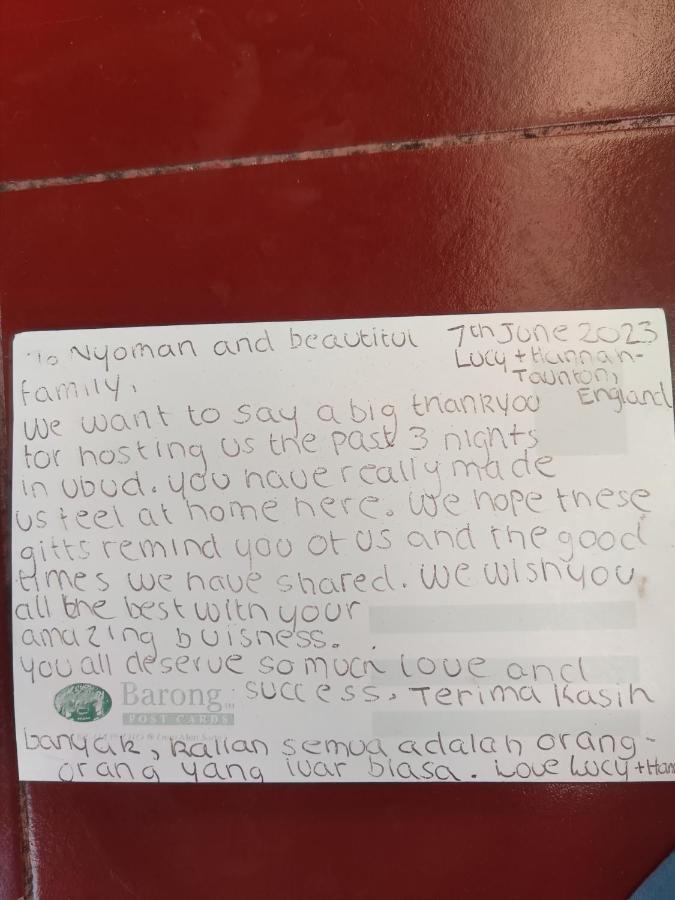 To Nyoman and beautiful 7th June 2023
Lucy + Hannah-
Taunton,
England
family,
We want to say a big thankyou
for hosting us the past 3 nights
in Ubud. you have really made
us feel at home here. We hope these
gifts remind you of us and the good
times we have shared. We wish you
all the best with your
amazing buisness.
you all deserve so much love and
success. Terima Kasih
Barong TM
POST CARDS
banyak, kalian semua adalah orang-
orang yang luar biasa. Love Lucy + Han